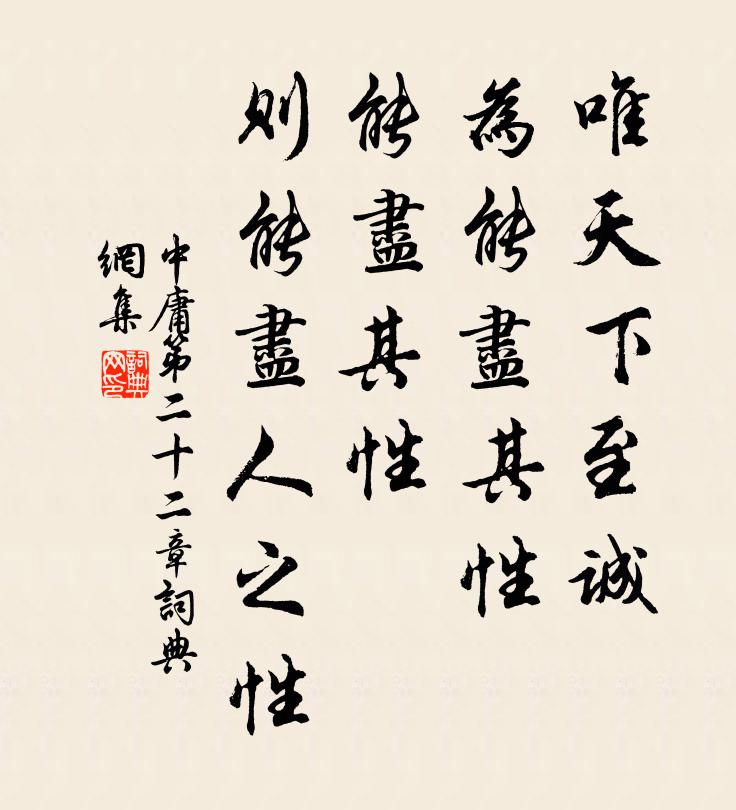 唯天下至誠
為能盡其性
能盡其性
則能盡人之性
中庸第二十二章詞典
網集
詞典
网印